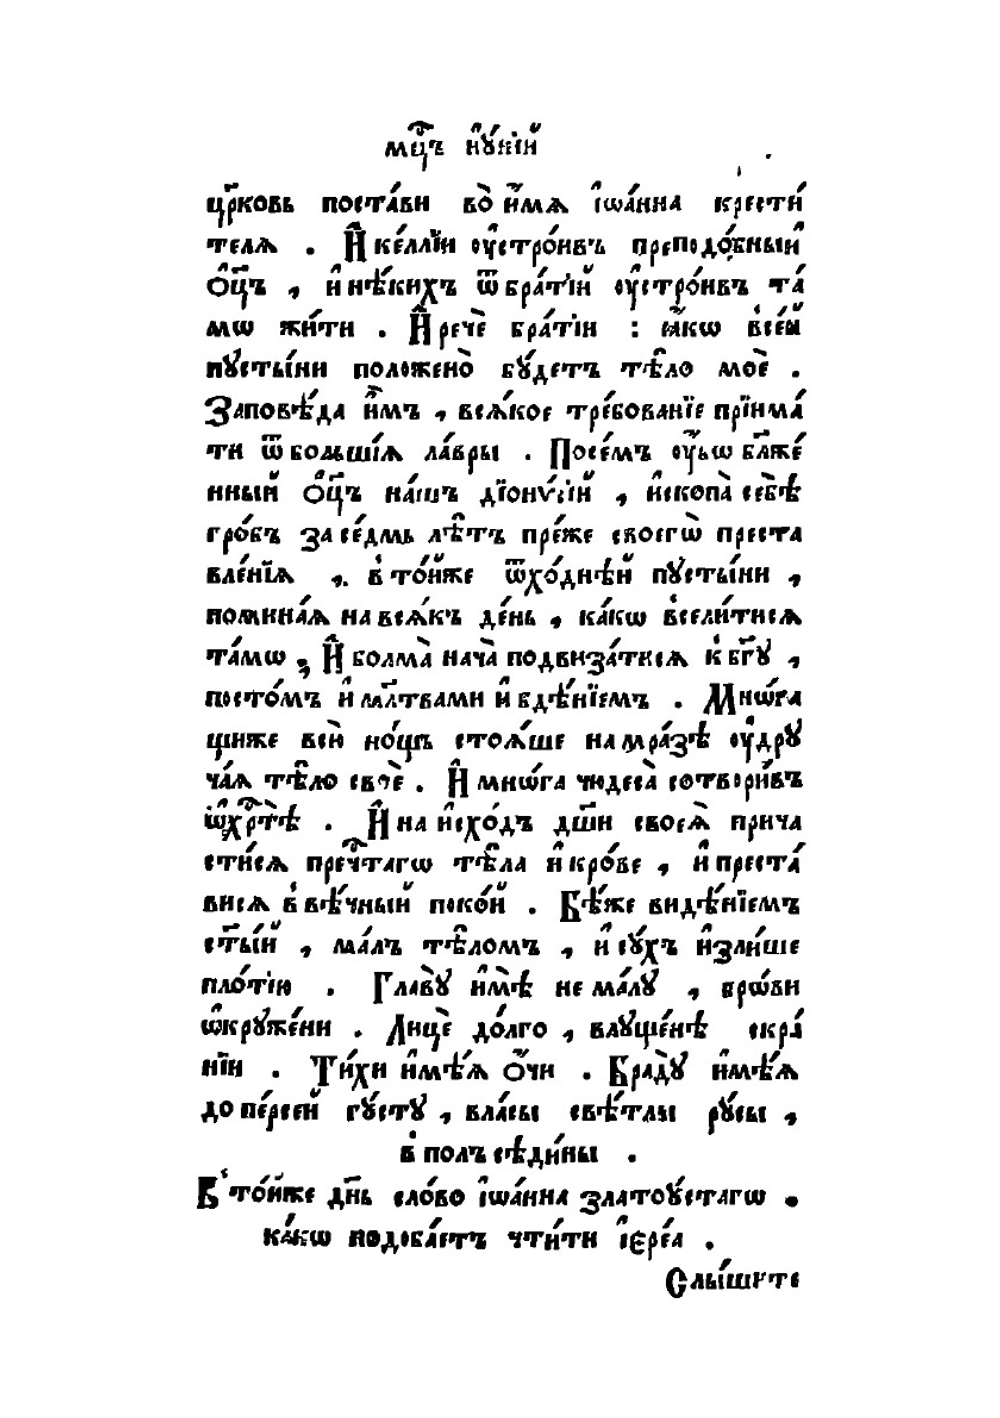 мцⷭ҇ъ і҆ꙋ́нїй
цр҃ковь поста́ви во̀ и҆́мѧ і҆ѡа́нна крести́
телѧ . И҆ ке́ллїи ᲂу҆стро́ивъ преподо́бный
ѻ҆ц҃ъ , и҆ нѣ́кихъ ѿ бра́тїй ᲂу҆стро́ивъ та́
мѡ жи́ти . И҆ речѐ бра́тїи : ꙗ҆́кѡ в̾се́й
пꙋсты́ни положено̀ бꙋ́детъ тѣ́ло моѐ .
Заповѣ́да и҆̀мъ , всѧ́кое тре́бованїе прїима́
ти ѿ бо́льшїѧ ла́вры . Посе́мъ ᲂу҆́бѡ бл҃же́
нный ѻ҆ц҃ъ на́шъ дїонѵ́сїй , и҆скопа̀ себѣ̀
гро́бъ за се́дмь лѣ́тъ пре́же своегѡ̀ преста
вле́нїѧ , в̾ то́йже ѿхо́днѣй пꙋсты́ни ,
помина́ѧ на всѧ́къ де́нь , ка́кѡ в̾сели́тисѧ
та́мѡ , И҆ болма̀ нача̀ подвиза́тисѧ к̾ бг҃ꙋ ,
посто́мъ и҆ мл҃твами и҆ бдѣ́нїемъ . Мнѡ́га
щиже всю̀ но́щь стоѧ́ше на мра́зѣ ᲂу҆дрꙋ
ча́ѧ тѣ́ло своѐ . И҆ мнѡ́га чюдеса̀ сотвори́въ
ѡ҆ хрⷭ҇тѣ̀ . И҆ на и҆схо́дъ дш҃и своеѧ̀ прича
сти́сѧ пречⷭ҇тагѡ тѣ́ла и҆ кро́ве , и҆ преста́
висѧ в̾ вѣ́чный поко́й . Бѣ́же видѣ́нїемъ
ст҃ы́й , ма́лъ тѣ́ломъ , и҆ сꙋ́хъ и҆зли́ше
пло́тїю . Главꙋ̀ и҆мѣ̀ не ма́лꙋ , брѡ́ви
ѡ҆крꙋже́ни . Лицѐ до́лго , влꙋще́нѣ скра́
нїи . Ти́хи и҆мѣ́ѧ ѻ҆́чи . Брадꙋ̀ и҆мѣ́ѧ
до пе́рсей гꙋ́стꙋ , власы̀ свѣ́тлы рꙋ́сы ,
в̾ полъ сѣди́ны .
В̾ то́йже дн҃ь сло́во і҆ѡа́нна златоꙋ́стагѡ .
ка́кѡ подоба́етъ чти́ти і҆ере́а .
Слы́шите